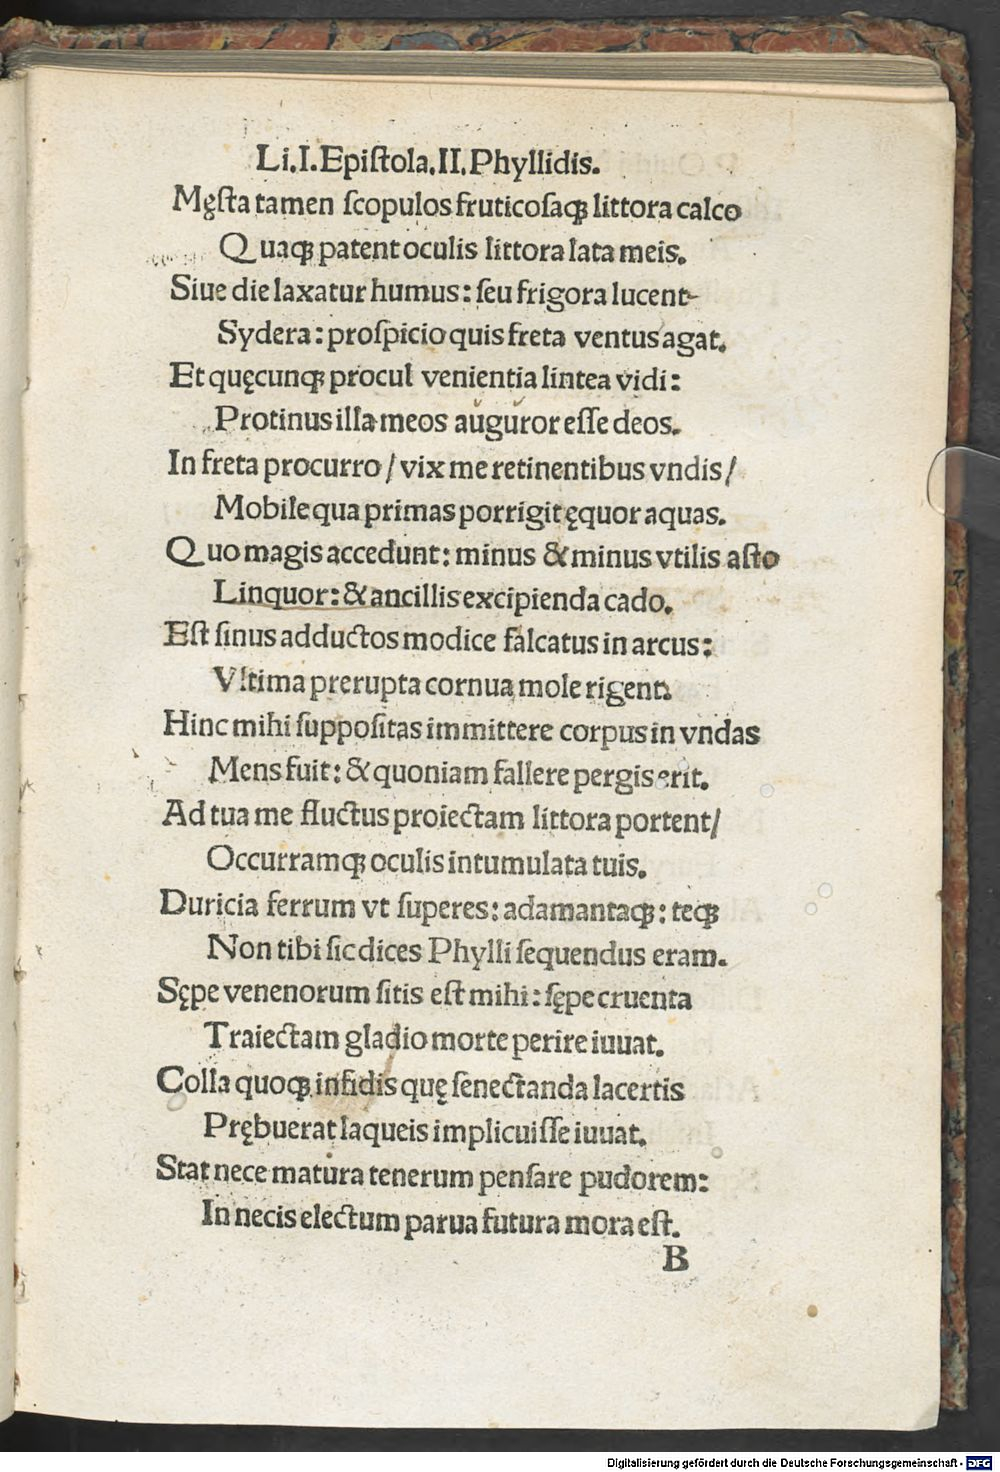 Li.I.Epiſtola.II.Phyllidis.
Męſta tamen ſcopulos fruticoſaqꝫ littora calco
Quaqꝫ patent oculis littora lata meis.
Siue die laxatur humus: ſeu frigora lucent
Sydera: proſpicio quis freta ventus agat.
Et quęcunqꝫ procul venientia lintea vidi:
Protinus illa meos auguror eſſe deos.
In freta procurro/ vix me retinentibus vndis/
Mobile qua primas porrigit ęquor aquas.
Quo magis accedunt: minus & minus vtilis aſto
Linquor: & ancillis excipienda cado.
Eſt ſinus adductos modice falcatus in arcus:
Vltima prerupta cornua mole rigent.
Hinc mihi ſuppoſitas immittere corpus in vndas
Mens fuit: & quoniam fallere pergis erit.
Ad tua me fluctus proiectam littora portent/
Occurramqꝫ oculis intumulata tuis.
Duricia ferrum vt ſuperes: adamantaqꝫ: teqꝫ
Non tibi ſic dices Phylli ſequendus eram.
Sępe venenorum ſitis eſt mihi: ſępe cruenta
Traiectam gladio morte perire iuuat.
Colla quoqꝫ infidis quę ſenectanda lacertis
Prębuerat laqueis implicuiſſe iuuat.
Stat nece matura tenerum penſare pudorem:
In necis electum parua futura mora eſt.
B
Digitalisierung gefördert durch die Deutsche Forschungsgemeinschaft - DFG